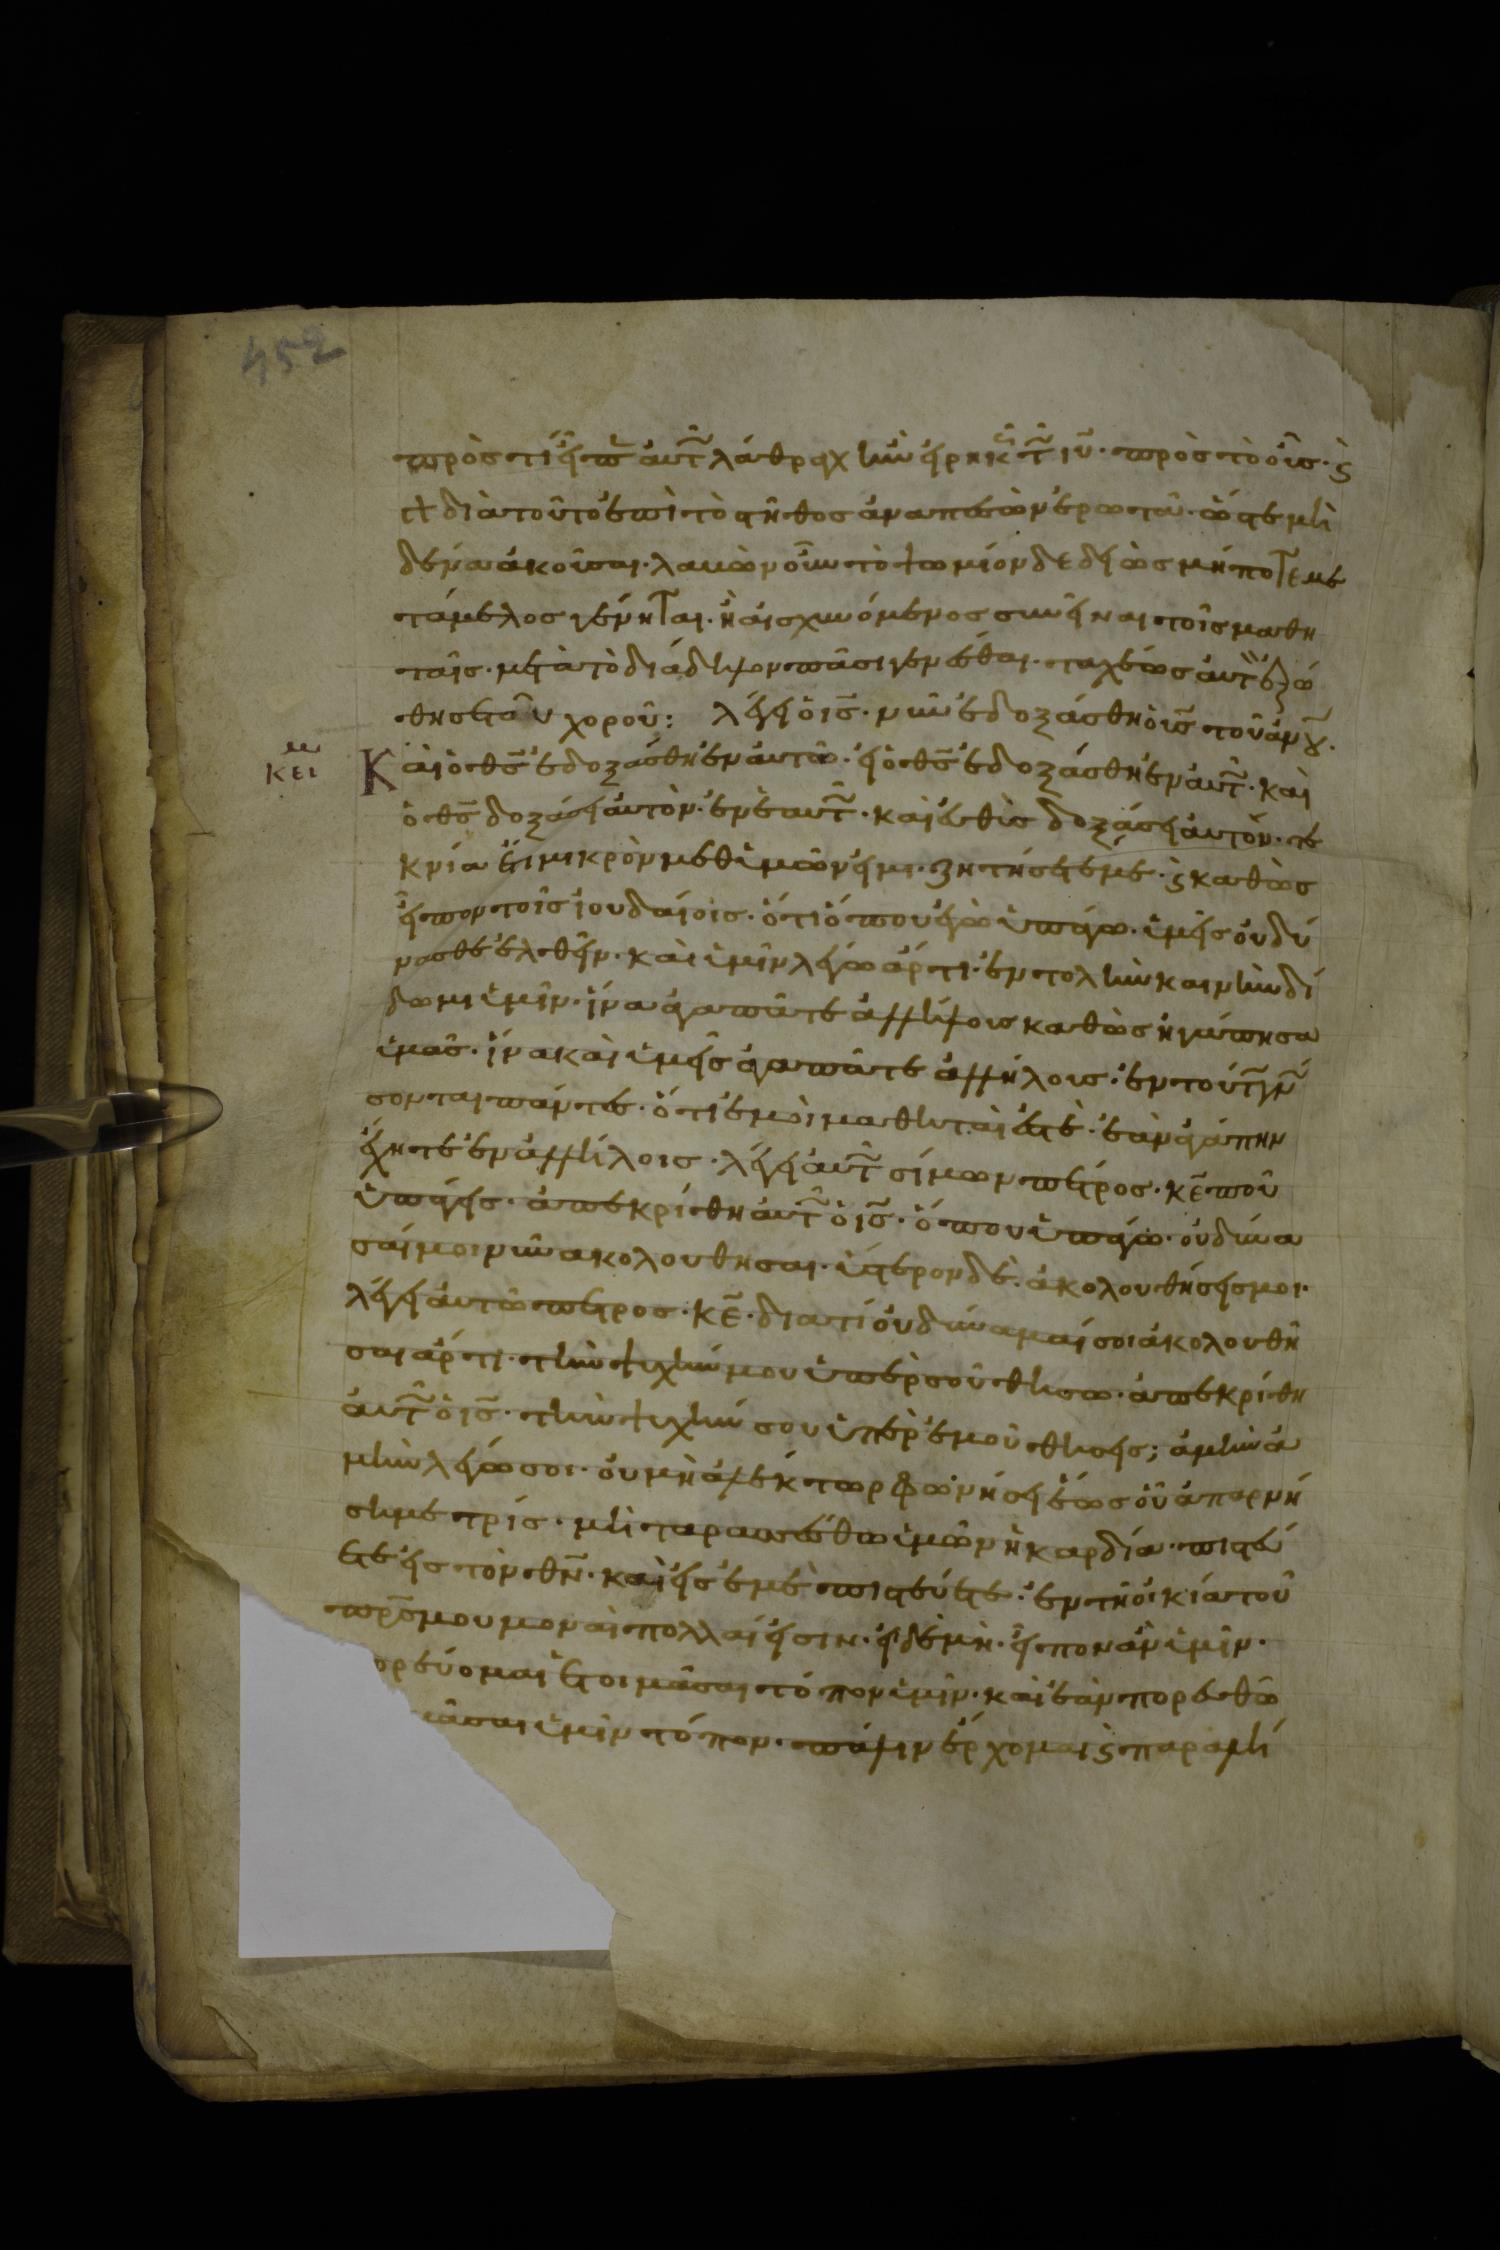 452
πρὸς τί εἶπεν αὐτῶ λάθρα
διὰ τοῦτο ἐπὶ τὸ στῆθος ἀναπεσὼν ἐρωτᾶ· ὥστε μη
δένα ἀκοῦσαι· λαβὼν οὖν τὸ ψωμίον δεδιὼς μήποτε με
τάμελος γένηται· ἢ αἰσχυνόμενος συνεῖναι τοῖς μαθη
ταῖς· μετὰ τὸ διάδηλον πᾶσι γενέσθαι· ταχέως αὐτ ἐξώ
σθη τοῦ χοροῦ: λέγει ὁ ις· νῦν ἐδοξάσθη ὁ υς τοῦ ανου·
κει Καὶ ὁ θς ἐδοξάσθη ἐν αὐτῶ· εἰ ὁ θς ἐδοξάσθη ἐν αὐτῶ· καὶ
ὁ θς δοξάσει αὐτὸν ἐν ἑαυτῶ· καὶ εὐθὺς δοξάσει αὐτόν· τε
κνία ἔτι μικρὸν μεθ ὑμῶν εἰμι· ζητήσετέ με· ϛ καθὼς
εἶπον τοῖς ἰουδαίοις· ὅτι ὅπου ἐγὼ ὑπάγω· ὑμεῖς οὐ δύ
νασθε ἐλθεῖν· καὶ ὑμῖν λέγω ἄρτι· ἐντολὴν καινὴν δί
δωμι ὑμῖν· ἵνα ἀγαπᾶτε ἀλλήλους καθὼς ἠγάπησα
ὑμᾶς· ἵνα καὶ ὑμεῖς ἀγαπᾶτε ἀλλήλους· ἐν τούτω γνώ
σονται πάντες· ὅτι ἐμοὶ μαθηταί ἐστε· ἐὰν ἀγάπην
ἔχητε ἐν ἀλλήλοις· λέγει αὐτῶ σίμων πέτρος· κε ποῦ
ὑπάγεις· ἀπεκρίθη αὐτῶ ὁ ις· ὅπου ὑπάγω· οὐ δύνα
σαί μοι νῦν ἀκολουθῆσαι· ὕστερον δὲ ἀκολουθήσεις μοι·
λέγει αὐτῶ πέτρος· κε· διατί οὐ δύναμαί σοι ἀκολουθῆ
σαι ἄρτι· τὴν ψυχήν μου ὑπὲρ σοῦ θήσω· ἀπεκρίθη
αὐτῶ ὁ ις· τὴν ψυχήν σου ὑπὲρ ἐμοῦ θήσεις; ἀμὴν ἀ
μὴν λέγω σοι· οὐ μὴ ἀλέκτωρ φωνήσει ἕως οὗ ἀπαρνή
ση με τρίς· μὴ ταρασσέσθω ὑμῶν ἡ καρδία· πιστεύ
ετε εἰς τὸν θν· καὶ εἰς ἐμὲ πιστεύετε· ἐν τῆ οἰκία τοῦ
πρς μου μοναὶ πολλαί εἰσιν· εἰ δὲ μὴ· εἶπον ἂν ὑμῖν·
ορεύομαι ἑτοιμάσαι τόπον ὑμῖν· καὶ ἐὰν πορευθῶ
μᾶσαι ὑμῖν τόπον· πάλιν ἔρχομαι ϛ παραλή